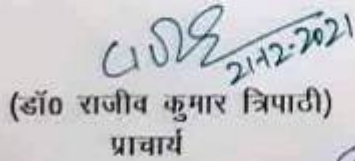 21-12-2021
(डॉ0 राजीव कुमार त्रिपाठी)
प्राचार्य